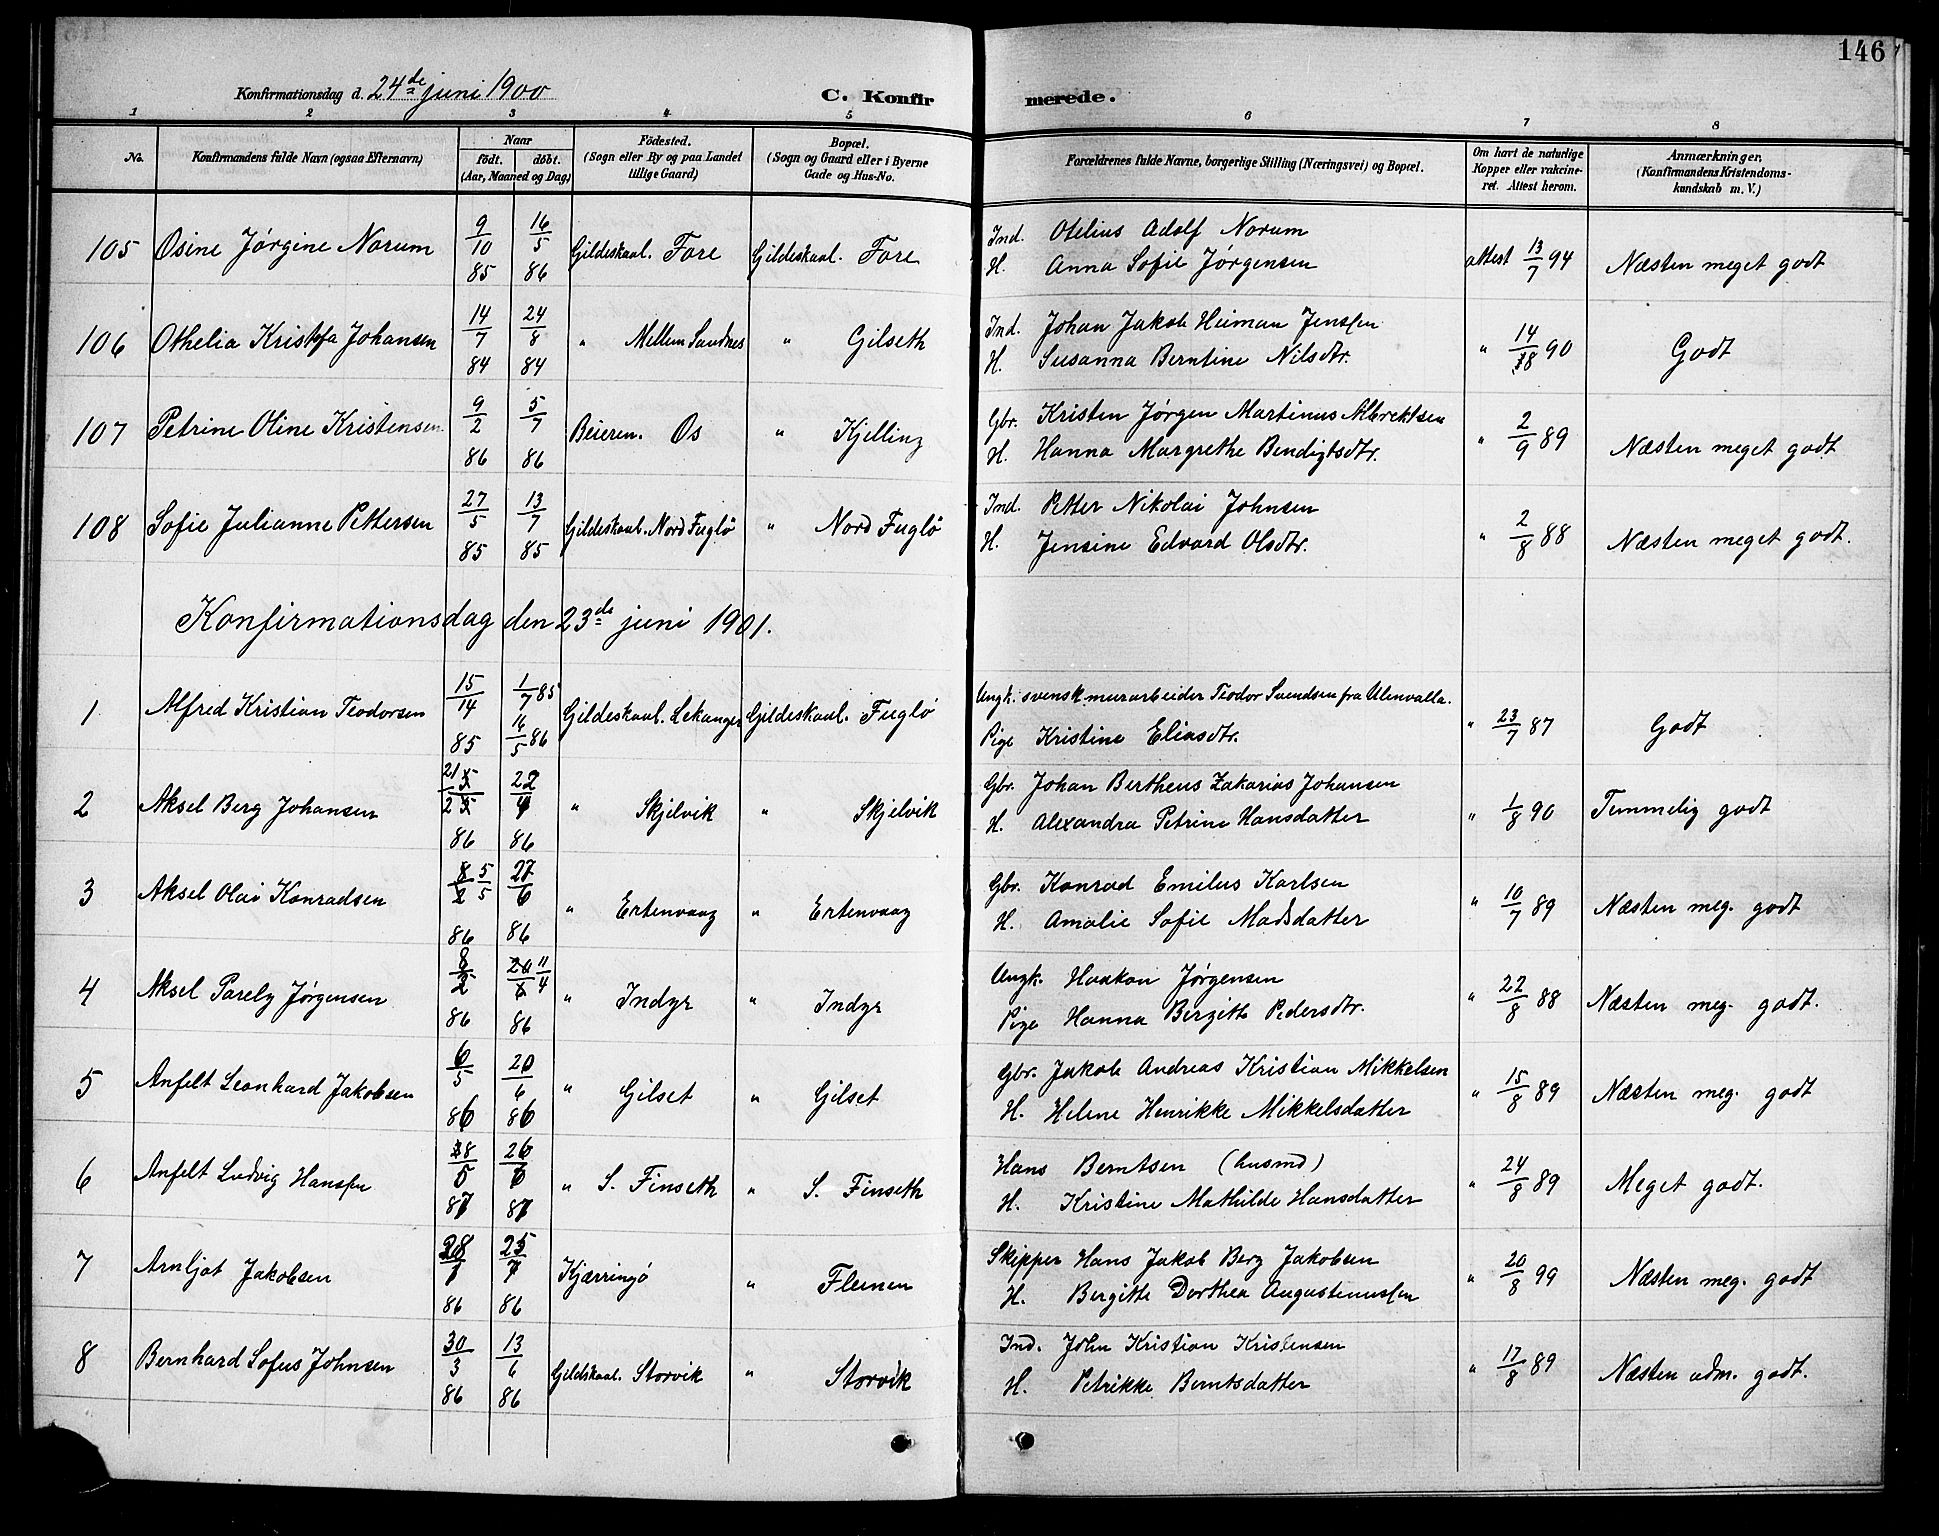 146
Konfirmationsdag d. 24de juni 1900
C. Konfir merede.
1 2 3 4 5 6 7 8
No.
Konfirmandens fulde Navn (ogsaa Efternavn)
Naar
födt. döbt.
(Aar, Maaned og Dag)
Födested.
(Sogn eller By og paa Landet
tillige Gaard)
Bopæl.
(Sogn og Gaard eller i Byerne
Gade og Hus-No.
Forældrenes fulde Navne, borgerlige Stilling (Næringsvei) og Bopæl.
Om havt de naturlige
Kopper eller vakcine-
ret. Attest herom.
Anmærkninger,
(Konfirmandens Kristendoms-
kundskab m. V.)
105 Osine Jørgine Norum 9/10 85 16/5 86 Gildeskaal. Fore Gildeskaal. Fore
Ind. Otelius Adolf Norum
H. Anna Sofie Jørgensen attest 13/7 94 Næsten meget godt
106 Othelia Kristofa Johansen 14/7 84 24/8 84 " Mellem Sandnes " Gilseth
Ind. Johan Jakob Heiman Jenssen
H. Susanna Berntine Nilsdtr. " 14/8 90 Godt
107 Petrine Oline Kristensen 9/2 86 5/7 86 Beieren. Os " Kjelling
Gbr. Kristen Jørgen Martinus Albrektsen
H. Hanna Margrethe Bendigtsdtr. " 2/9 89 Næsten meget godt
108 Sofie Julianne Pettersen 27/5 85 13/7 85 Gildeskaal. Nord Fuglö " Nord Fuglö
Ind. Petter Nikolai Johnsen
H. Jensine Edvard Olsdtr. " 2/8 88 Næsten meget godt.
Konfirmationsdag den 23de juni 1901.
1 Alfred Kristian Teodorsen 15/14 85 1/7 85 16/5 86 Gildeskaal. Lekanger Gildeskaal. Fuglö
Ungk. svensk murarbeider Teodor Svendsen fra Ulenvalla.
Pige Kristine Eliasdtr. " 23/7 87 Godt
2 Aksel Berg Johansen 21 86 22 86 " Skjelvik " Skjelvik
Gbr. Johan Bertheus Zakarias Johansen
H. Alexandra Petrine Hansdatter " 1/8 90 Temmelig godt
3 Aksel Olai Konradsen 8/2 5/5 86 27/6 86 " Ertenvaag " Ertenvaag
Gbr. Konrad Emilus Karlsen
H. Amalie Sofie Madsdatter " 10/7 89 Næsten meg. godt
4 Aksel Parely Jørgensen 8/2 86 20/6 11/4 86 " Indyr " Indyr
Ungk. Haakon Jørgensen
Pige Hanna Bergitte Pedersdtr. " 22/8 88 Næsten meg. godt.
5 Anfelt Leonhard Jakobsen 6/5 86 20/6 86 " Gilset " Gilset
Gbr. Jakob Andreas Kristian Mikkelsen
H. Helene Henrikke Mikkelsdatter " 15/8 89 Næsten meg. godt
6 Anfelt Ludvig Hanssen 28/5 87 26/6 87 " S. Finseth " S. Finseth
Hans Berntsen (husmd)
H. Kristine Mathilde Hansdatter " 24/8 89 Meget godt.
7 Arnljot Jakobsen 28/1 86 25/7 86 Kjærringö " Fleinen
Skipper Hans Jakob Berg Jakobsen
H. Bergitte Dorthea Augustenussen " 20/8 99 Næsten meg. godt
8 Bernhard Sofus Johnsen 30/3 86 13/6 86 Gildskaal. Storvik " Storvik
Ind. John Kristian Kristensen
H. Petrikke Berntsdatter " 17/8 89 Næsten udm. godt.